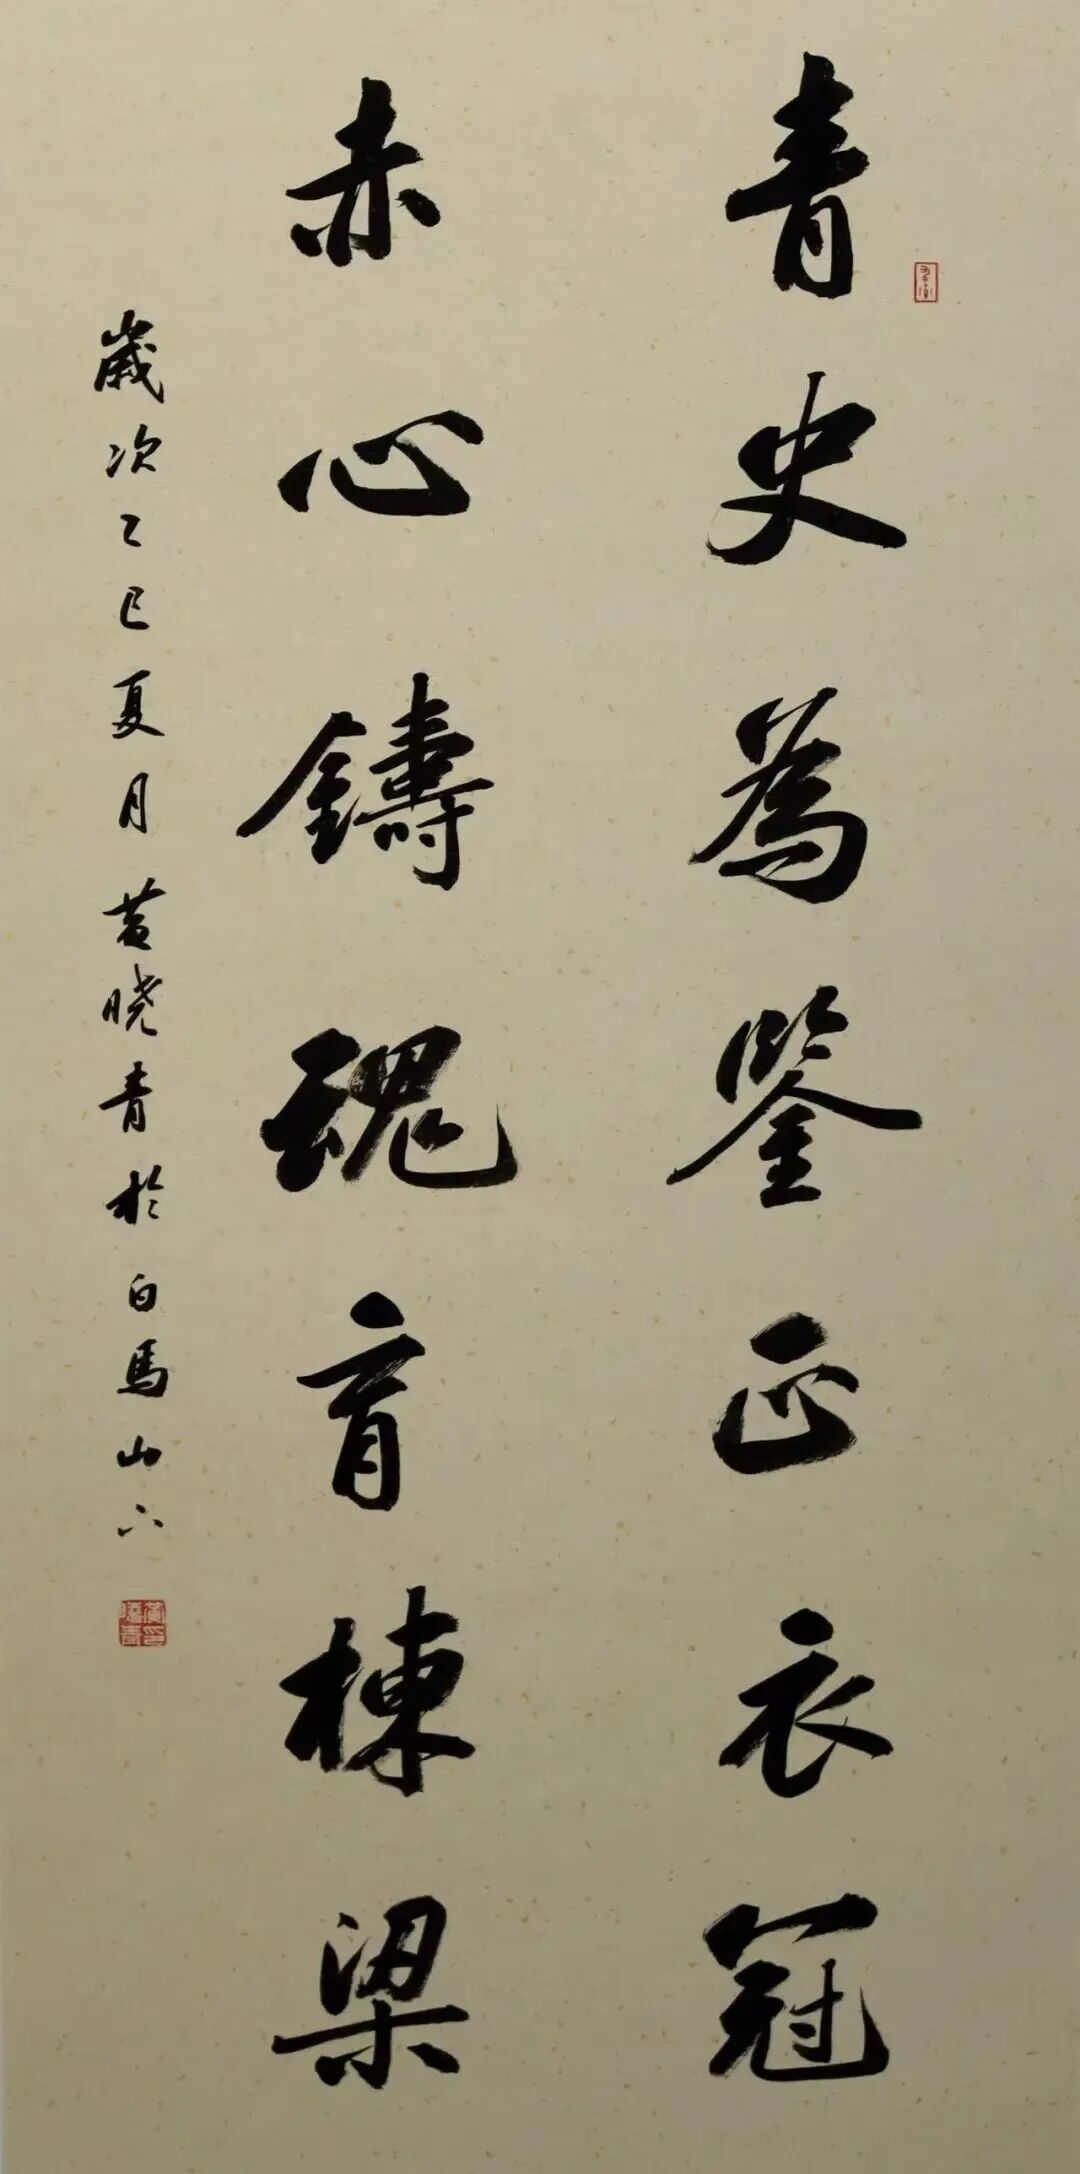 青史為鑒正衣冠
赤心鑄魂育棟梁
歲次乙巳夏月黄晓青於白馬山下